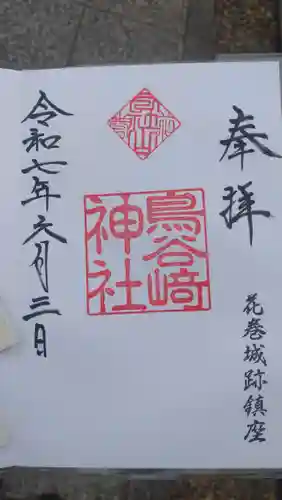 奉拝
花巻城跡鎮座
鳥谷崎
神社
令和七年六月三日